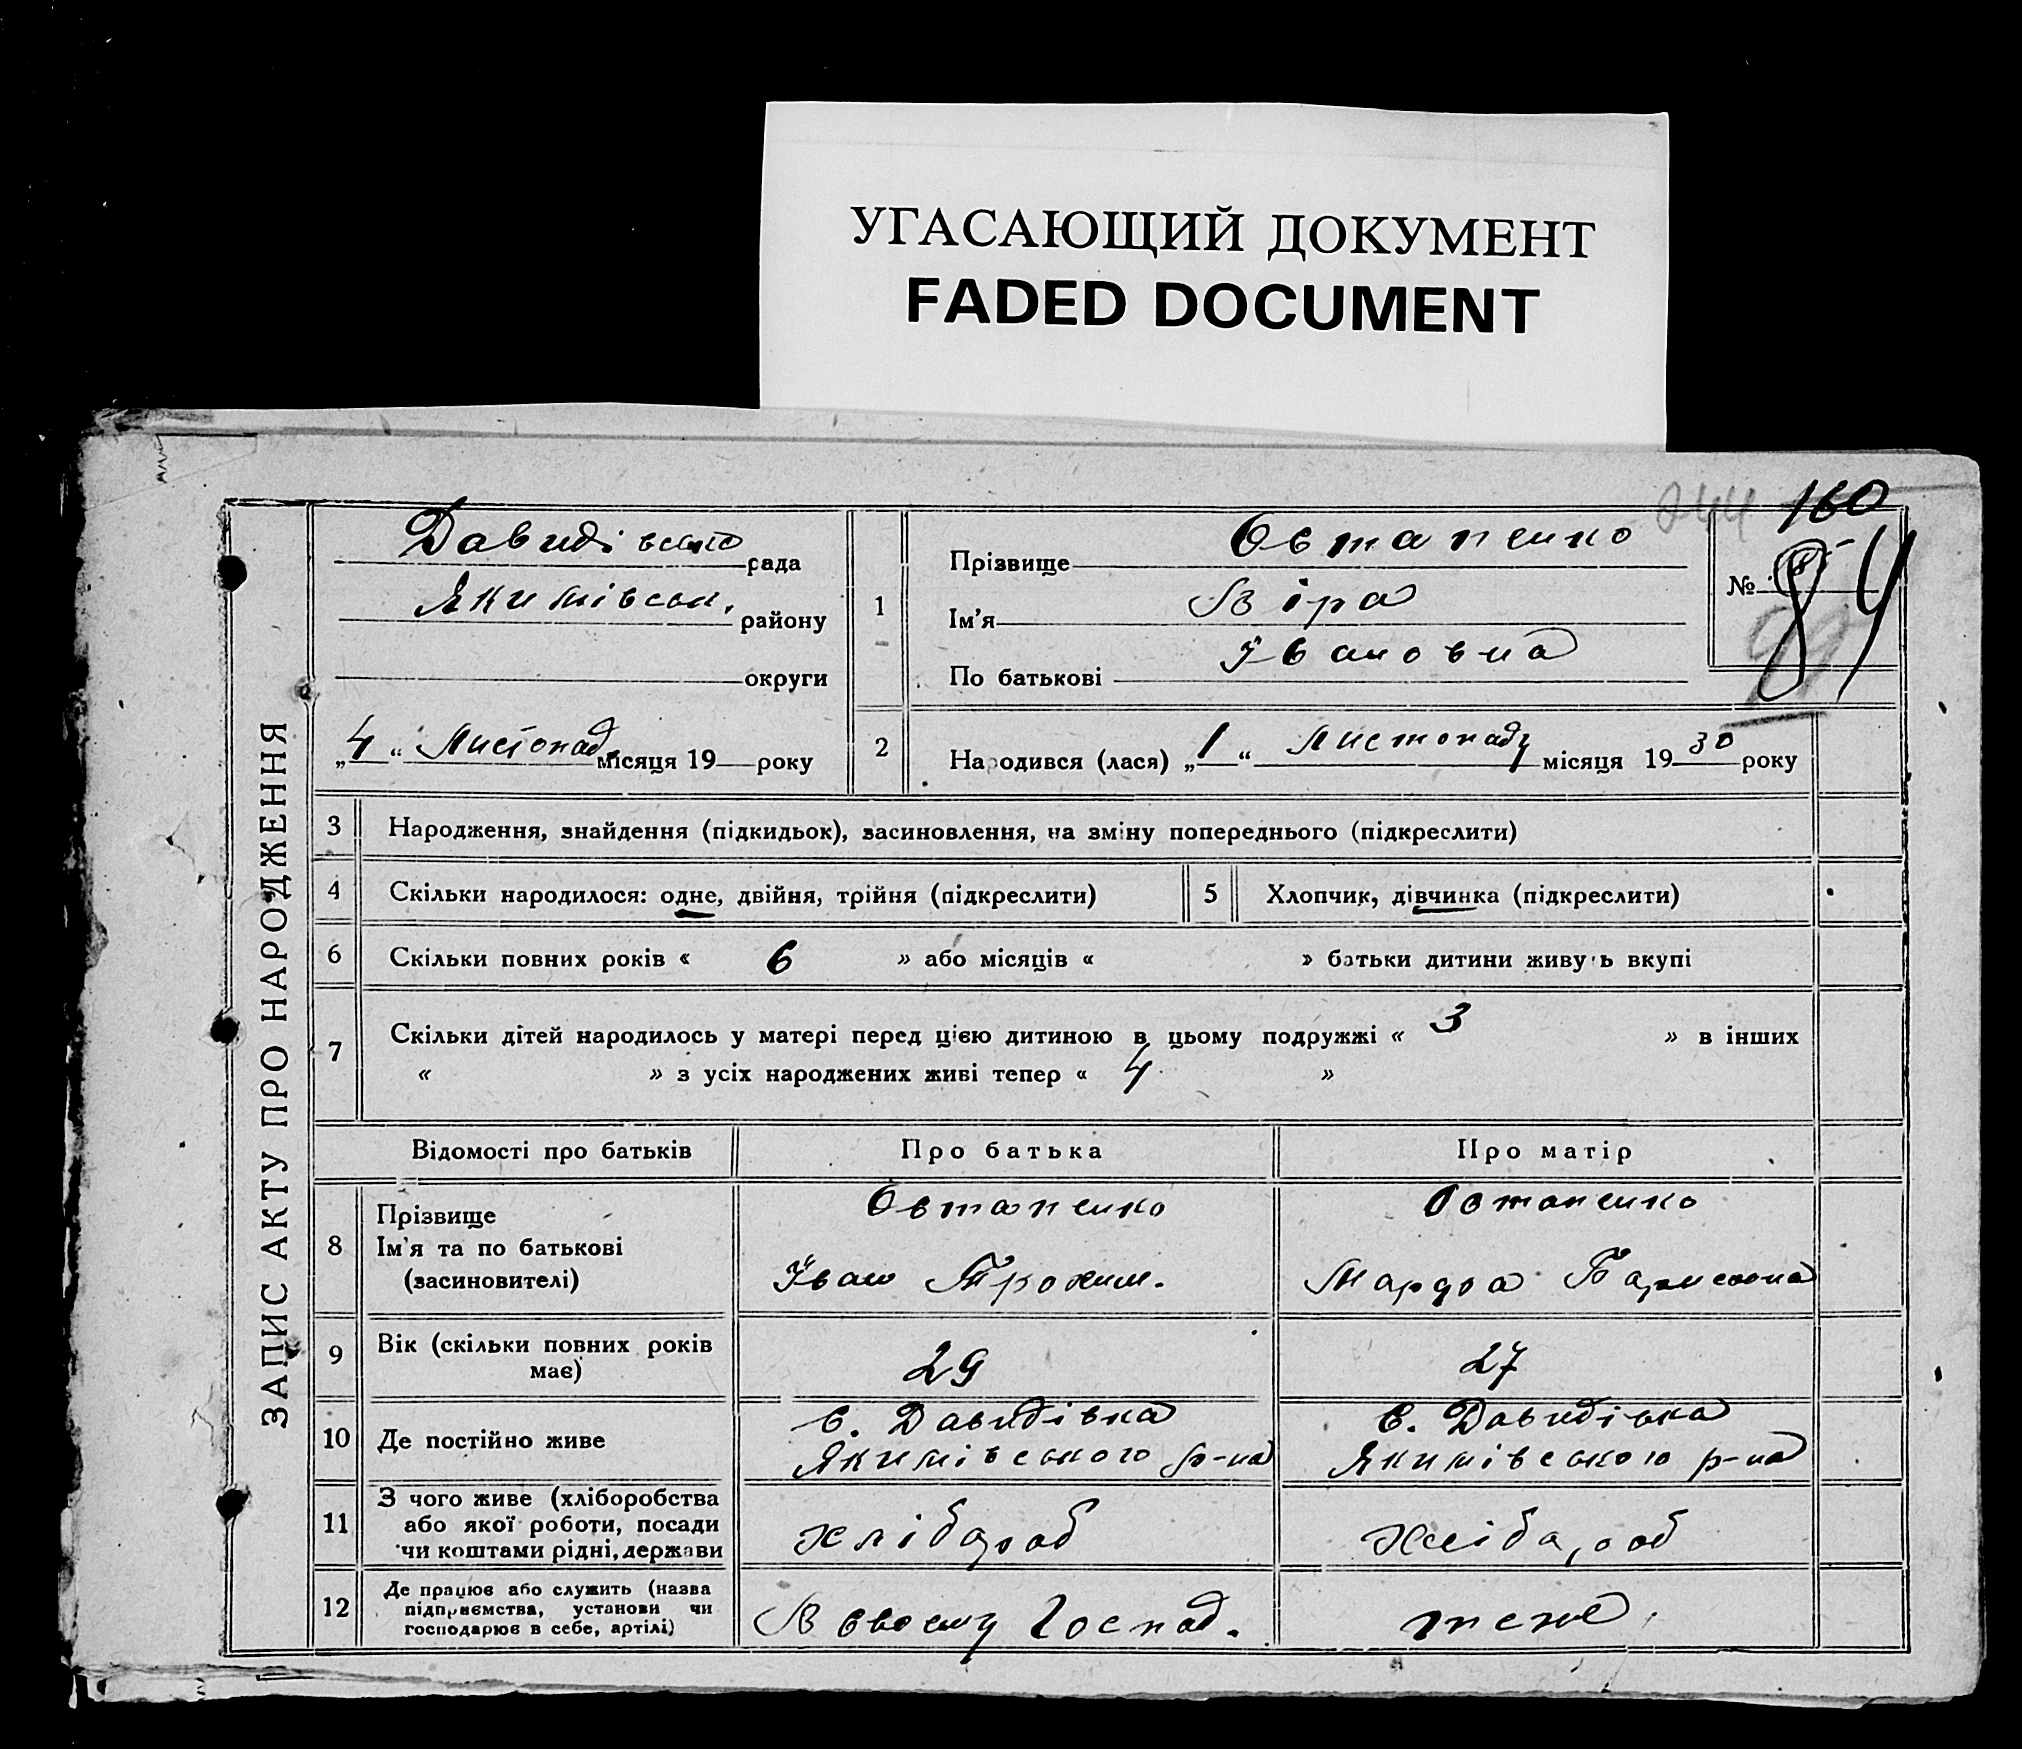 УГАСАЮЩИЙ ДОКУМЕНТ
FADED DOCUMENT
160
ЗАПИС АКТУ ПРО НАРОДЖЕННЯ
Давидівська рада
Якимівськ. району
округи
„4“ Листопад місяця 19 року
1
Прізвище Овтапенко
Ім'я Віра
По батькові Івановна
№ 84
2
Народився (лася) „1“ Листопаду місяця 1930 року
3 Народження, знайдення (підкидьок), засиновлення, на зміну попереднього (підкреслити)
4 Скільки народилося: одне, двійня, трійня (підкреслити)
5 Хлопчик, дівчинка (підкреслити)
6 Скільки повних років « 6 » або місяців « » батьки дитини живуть вкупі
7 Скільки дітей народилось у матері перед цією дитиною в цьому подружжі « 3 » в інших
« » з усіх народжених живі тепер « 4 »
Відомості про батьків Про батька Про матір
8 Прізвище
Ім'я та по батькові
(засиновителі)
Овтапенко
Іван Трохим.
Овтапенко
Марфа
9 Вік (скільки повних років
має)
29
27
10 Де постійно живе
с. Давидівка
Якимівського р-на
с. Давидівка
Якимівського р-на
11 З чого живе (хліборобства
або якої роботи, посади
чи коштами рідні, держави
хлібароб
хлібароб
12 Де працює або служить (назва
підприємства, установи чи
господарює в себе, артілі)
В своему Госпад.
теже